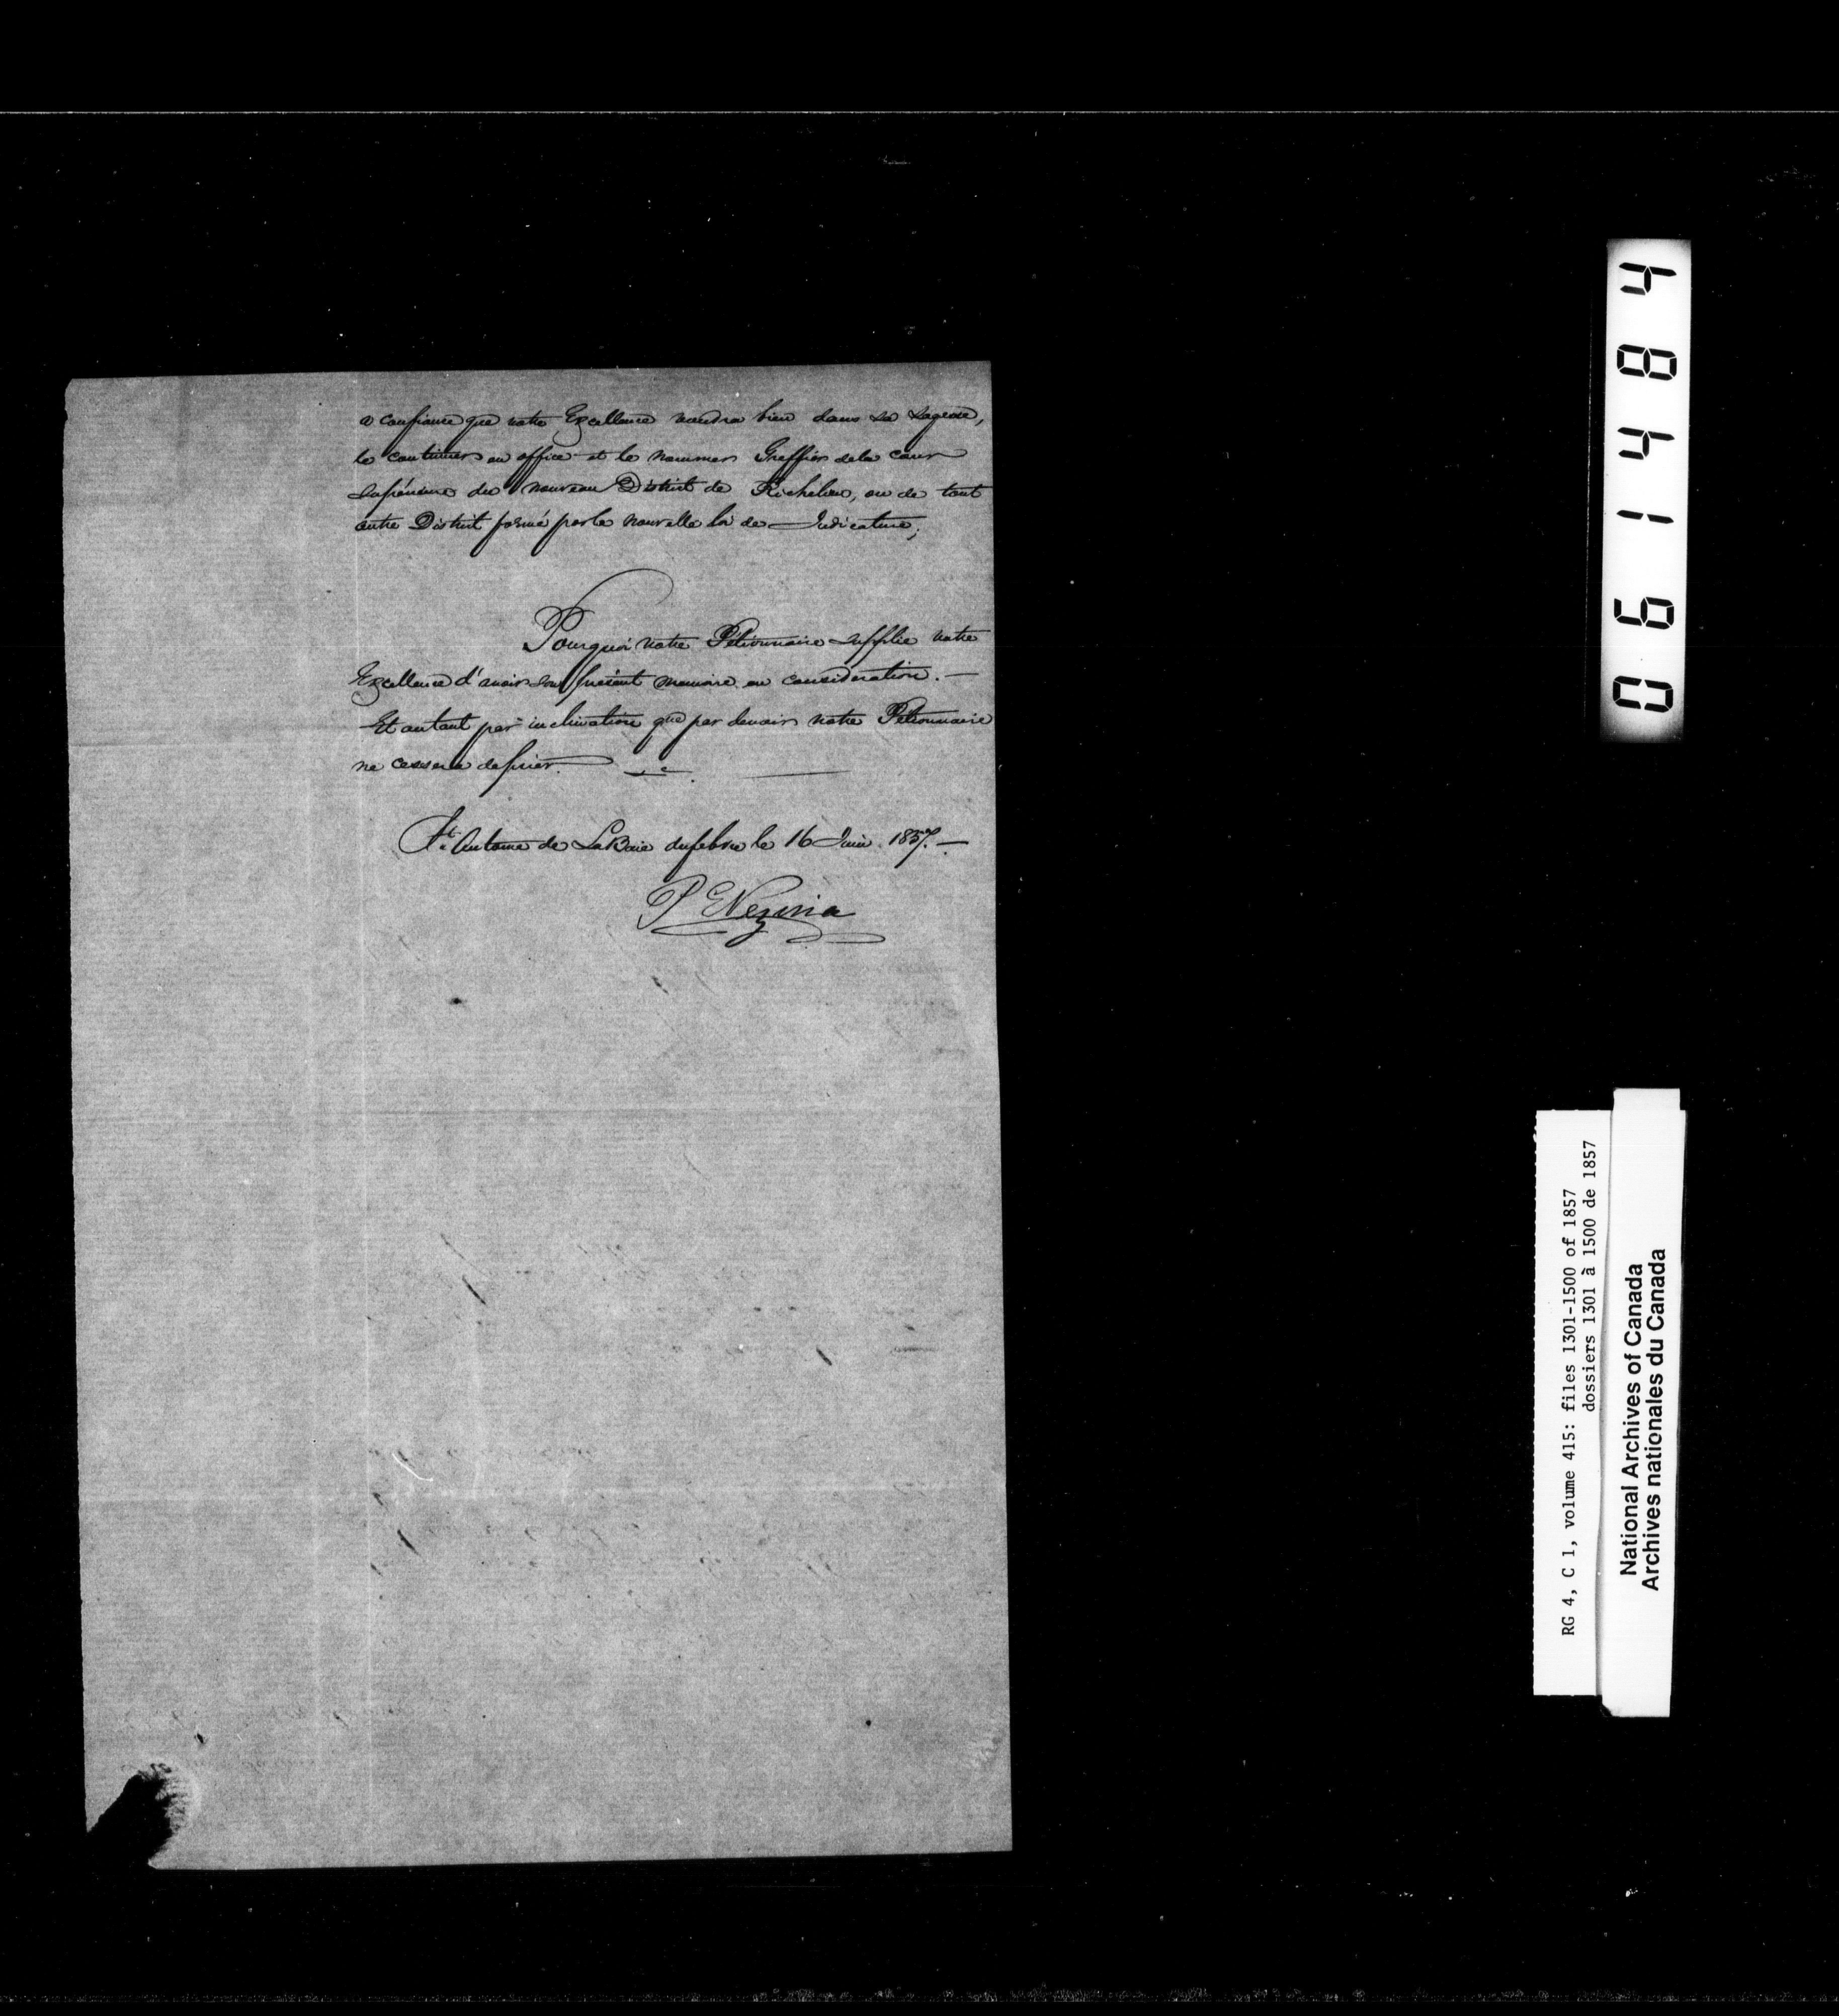 a confiance que votre Excellence voudra bien dans sa sagesse,
le continuer en office et le nommer Greffier de la cour
supérieure du nouveau District de Richelieu, ou de tout
autre District formé par la nouvelle loi de Judicature;
Pourquoi votre Pétionnaire supplie votre
Excellence d'avoir son présent memoire en consideration. —
Et autant par inclination que par devoir votre Pétionnaire
ne cessera de prier.
St. Antoine de LaBaie dufebvre le 16 Juin 1857. —
P E Vezina
061484
RG 4, C 1, volume 415: files 1301-1500 of 1857
dossiers 1301 à 1500 de 1857
National Archives of Canada
Archives nationales du Canada